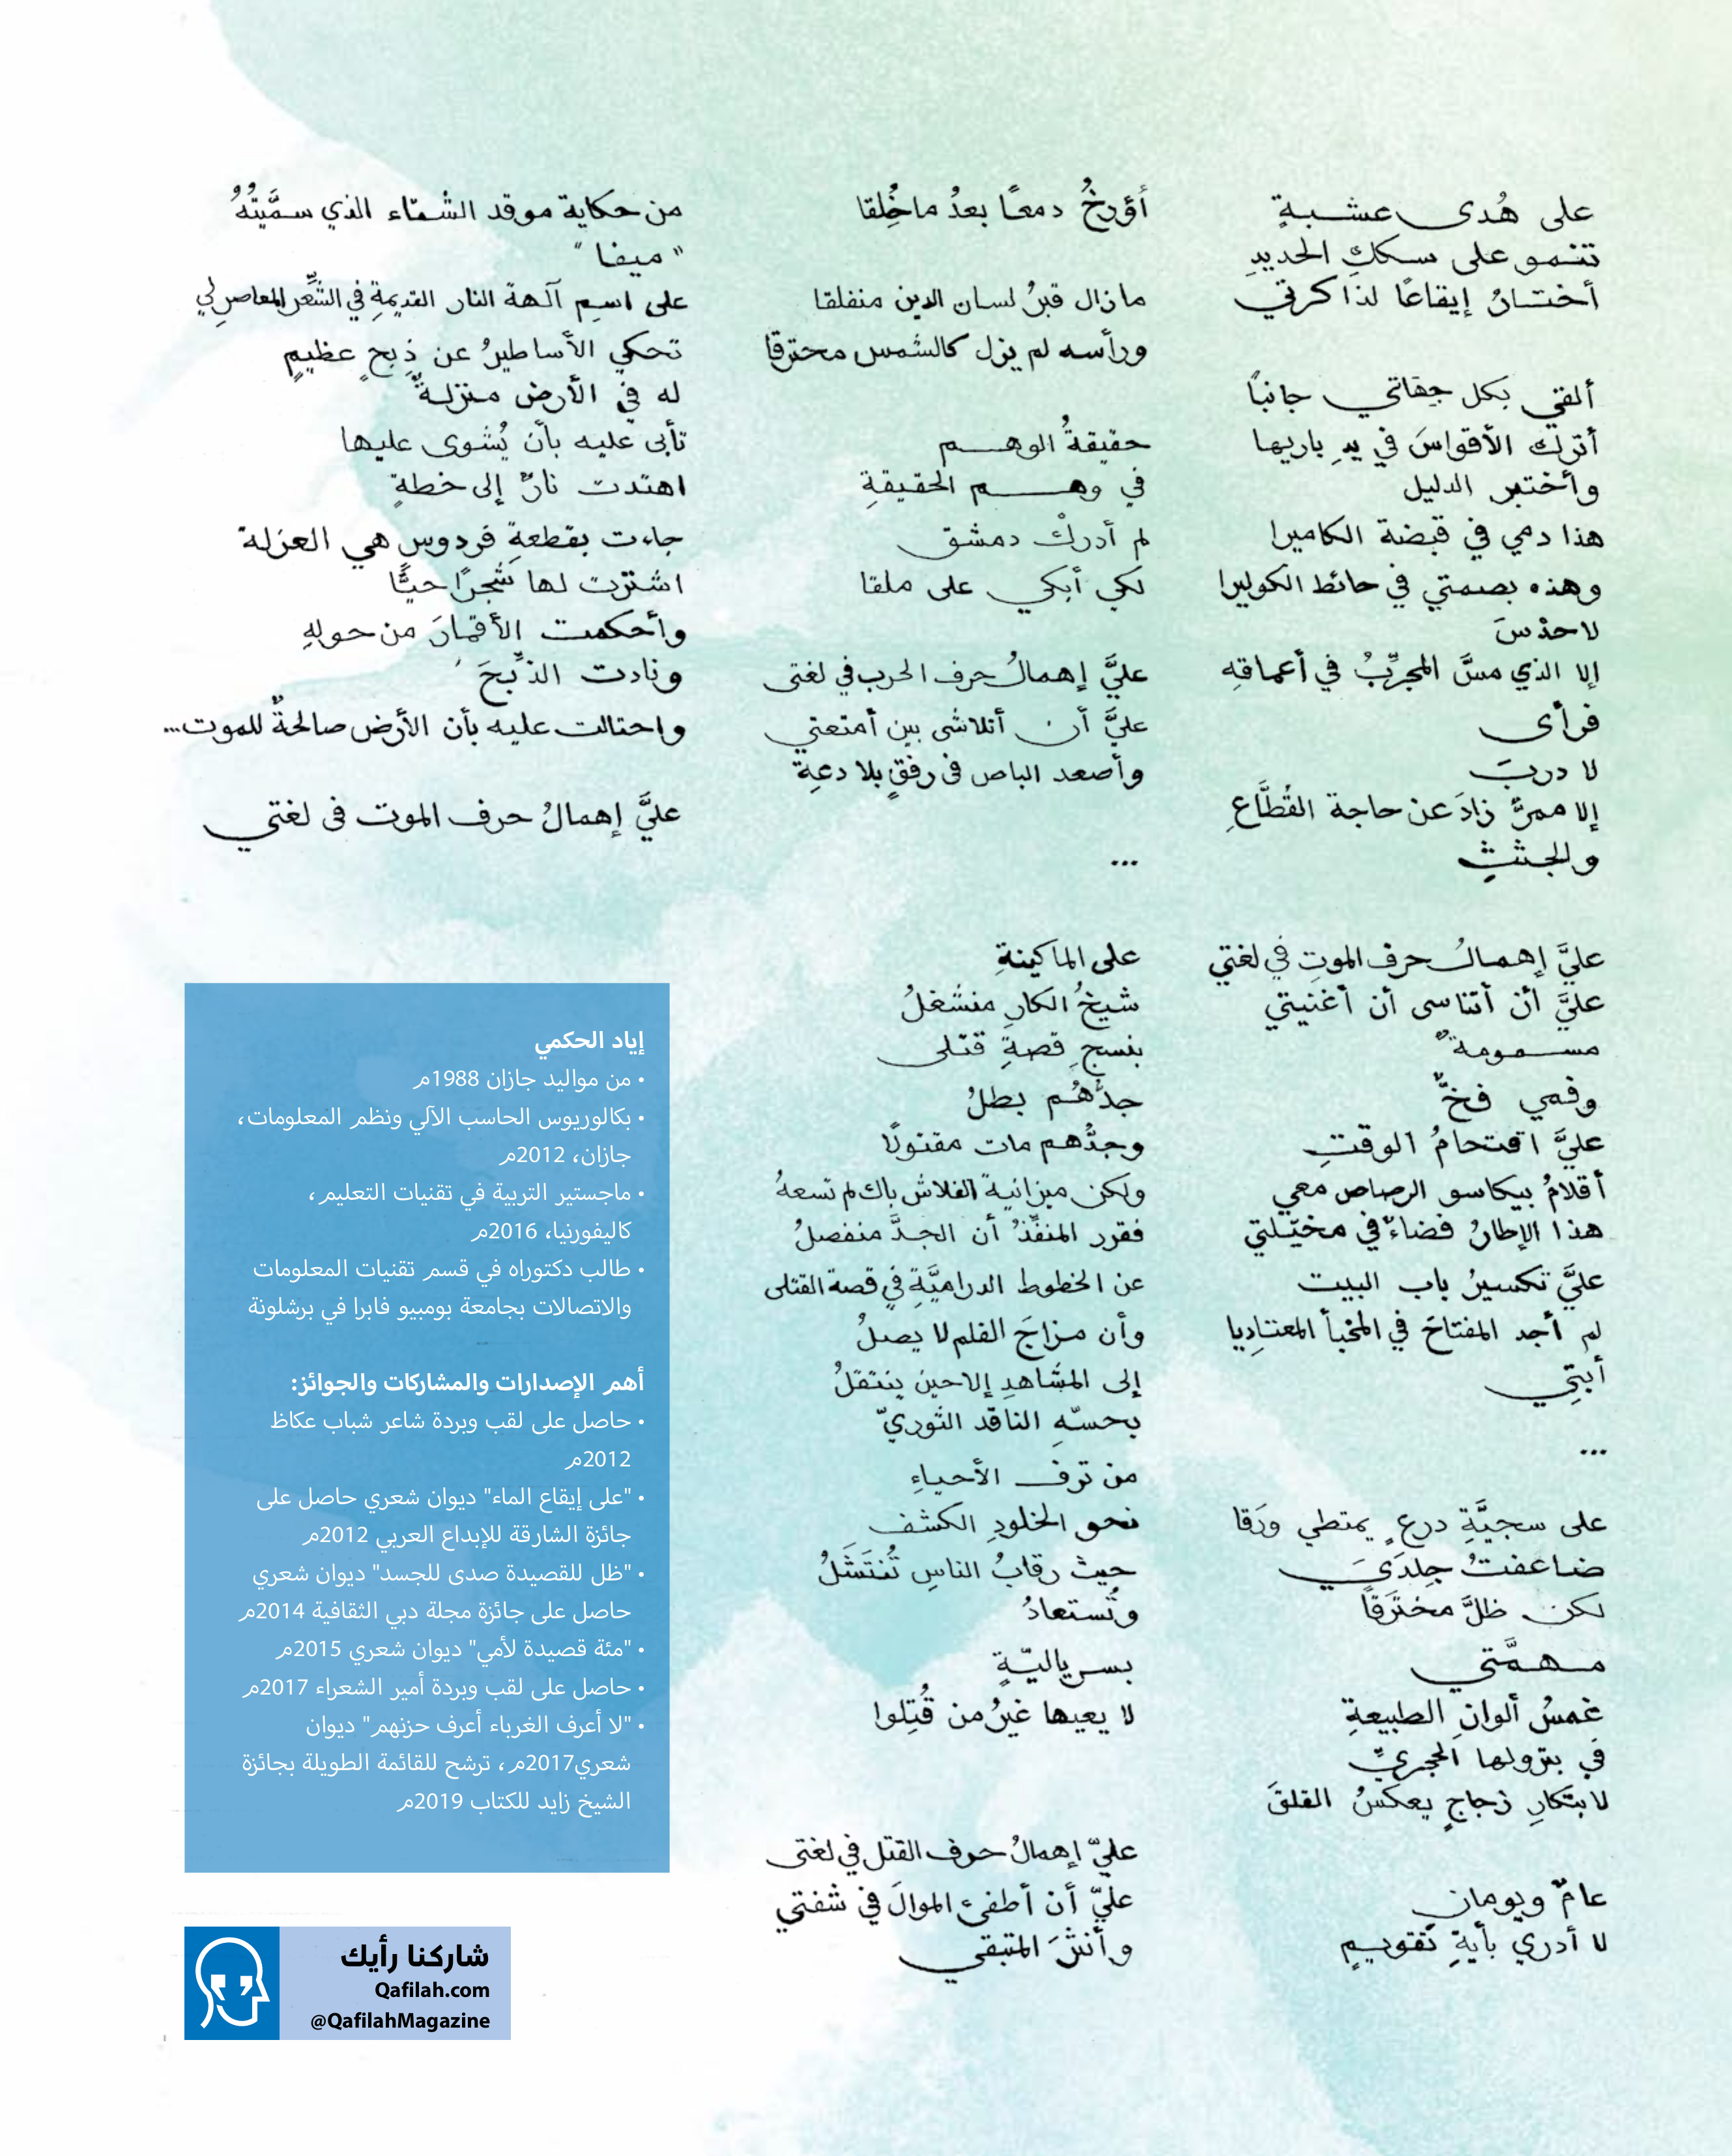 على هُدى عشبةٍ
تنمو على سككِ الحديدِ
أختارُ إيقاعًا لذاكرتي
ألقي بكل جهاتي جانبًا
أترك الأقواسَ في يدِ باريها
وأختبر الدليل
هذا دمي في قبضة الكاميرا
وهذه بصمتي في حائط الكوليرا
لا حدْسَ
إلا الذي مسَّ المجرِّبُ في أعماقهِ
فرأى
لا دربَ
إلا ممرٌّ زادَ عن حاجة القُطَّاعِ
والجثثِ
عليَّ إهمالُ حرف الموتِ في لغتي
عليَّ أنْ أتناسى أن أغنيتي
مسمومةٌ
وفمي فخٌّ
عليَّ اقتحامُ الوقتِ
أقلامُ بيكاسو الرصاص معي
هذا الإطارُ فضاءٌ في مخيّلتي
عليَّ تكسيرُ باب البيت
لم أجد المفتاحَ في المخبأ المعتادِ يا
أبتِي
...
على سجيَّةِ درعٍ يمتطي ورَقا
ضاعفتُ جِلدَيَ
لكن ظلَّ مخترَقًا
مهمَّتي
غمسُ ألوانِ الطبيعةِ
في بترولها الحجريِّ
لابتكارِ زجاجٍ يعكسُ القلقَ
عامٌ ويومان
لا أدري بأيةِ تقويمٍ
أؤرخُ دمعًا بعدُ ما خُلقا
ما زال قبرُ لسان الدين منفلقا
ورأسه لم يزل كالشمس محترقًا
حقيقةُ الوهم
في وهم الحقيقةِ
لم أدركْ دمشق
لكي أبكي على ملقا
عليَّ إهمالُ حرف الحرب في لغتى
عليَّ أن أتلاشى بين أمتعتي
وأصعد الباص فى رفقٍ بلا دعةِ
...
على الماكينةِ
شيخُ الكارِ منشغلُ
بنسجِ قصةِ قتلى
جدُّهُم بطلُ
وجدُّهم مات مقتولًا
ولكن ميزانية الفلاش باك لم تسعهُ
فقرر المنفّذُ أن الجدَّ منفصلُ
عن الخطوط الدراميَّةِ في قصة القتلى
وأن مزاجَ الفلم لا يصلُ
إلى المشاهدِ إلا حين ينتقلُ
بحسّهِ الناقد الثوريّ
من ترف الأحياءِ
نحو الخلودِ الكشف
حيث رقابُ الناسِ تُنتَشَلُ
وتُستعادُ
بسرياليّةٍ
لا يعيها غيرُ من قُتِلوا
عليّ إهمالُ حرف القتل في لغتى
عليّ أن أطفئ الموالَ في شفتي
وأنشَ المتبقي
من حكاية موقد الشتاء الذي سمَّيتُهُ
"ميفا"
على اسمِ آلهة النار القديمةِ في الشّعر المعاصرِ لي
تحكي الأساطيرُ عن ذِبحٍ عظيمٍ
له في الأرض منزلةٌ
تأبى عليه بأن يُشوى عليها
اهتدت نارٌ إلى خطةٍ
جاءت بقطعةِ فردوسٍ هي العزلة
اشترت لها شجرًا حيًّا
وأحكمت الأقمارَ من حولهِ
ونادت الذّبحَ
واحتالت عليه بأن الأرض صالحةٌ للموت...
عليَّ إهمالُ حرف الموت فى لغتي
إياد الحكمي
• من مواليد جازان 1988م
• بكالوريوس الحاسب الآلي ونظم المعلومات،
جازان، 2012م
• ماجستير التربية في تقنيات التعليم،
كاليفورنيا، 2016م
• طالب دكتوراه في قسم تقنيات المعلومات
والاتصالات بجامعة بومبيو فابرا في برشلونة
أهم الإصدارات والمشاركات والجوائز:
• حاصل على لقب وبردة شاعر شباب عكاظ
2012م
• "على إيقاع الماء" ديوان شعري حاصل على
جائزة الشارقة للإبداع العربي 2012م
• "ظل للقصيدة صدى للجسد" ديوان شعري
حاصل على جائزة مجلة دبي الثقافية 2014م
• "مئة قصيدة لأمي" ديوان شعري 2015م
• حاصل على لقب وبردة أمير الشعراء 2017م
• "لا أعرف الغرباء أعرف حزنهم" ديوان
شعري2017م، ترشح للقائمة الطويلة بجائزة
الشيخ زايد للكتاب 2019م
شاركنا رأيك
Qafilah.com
@QafilahMagazine